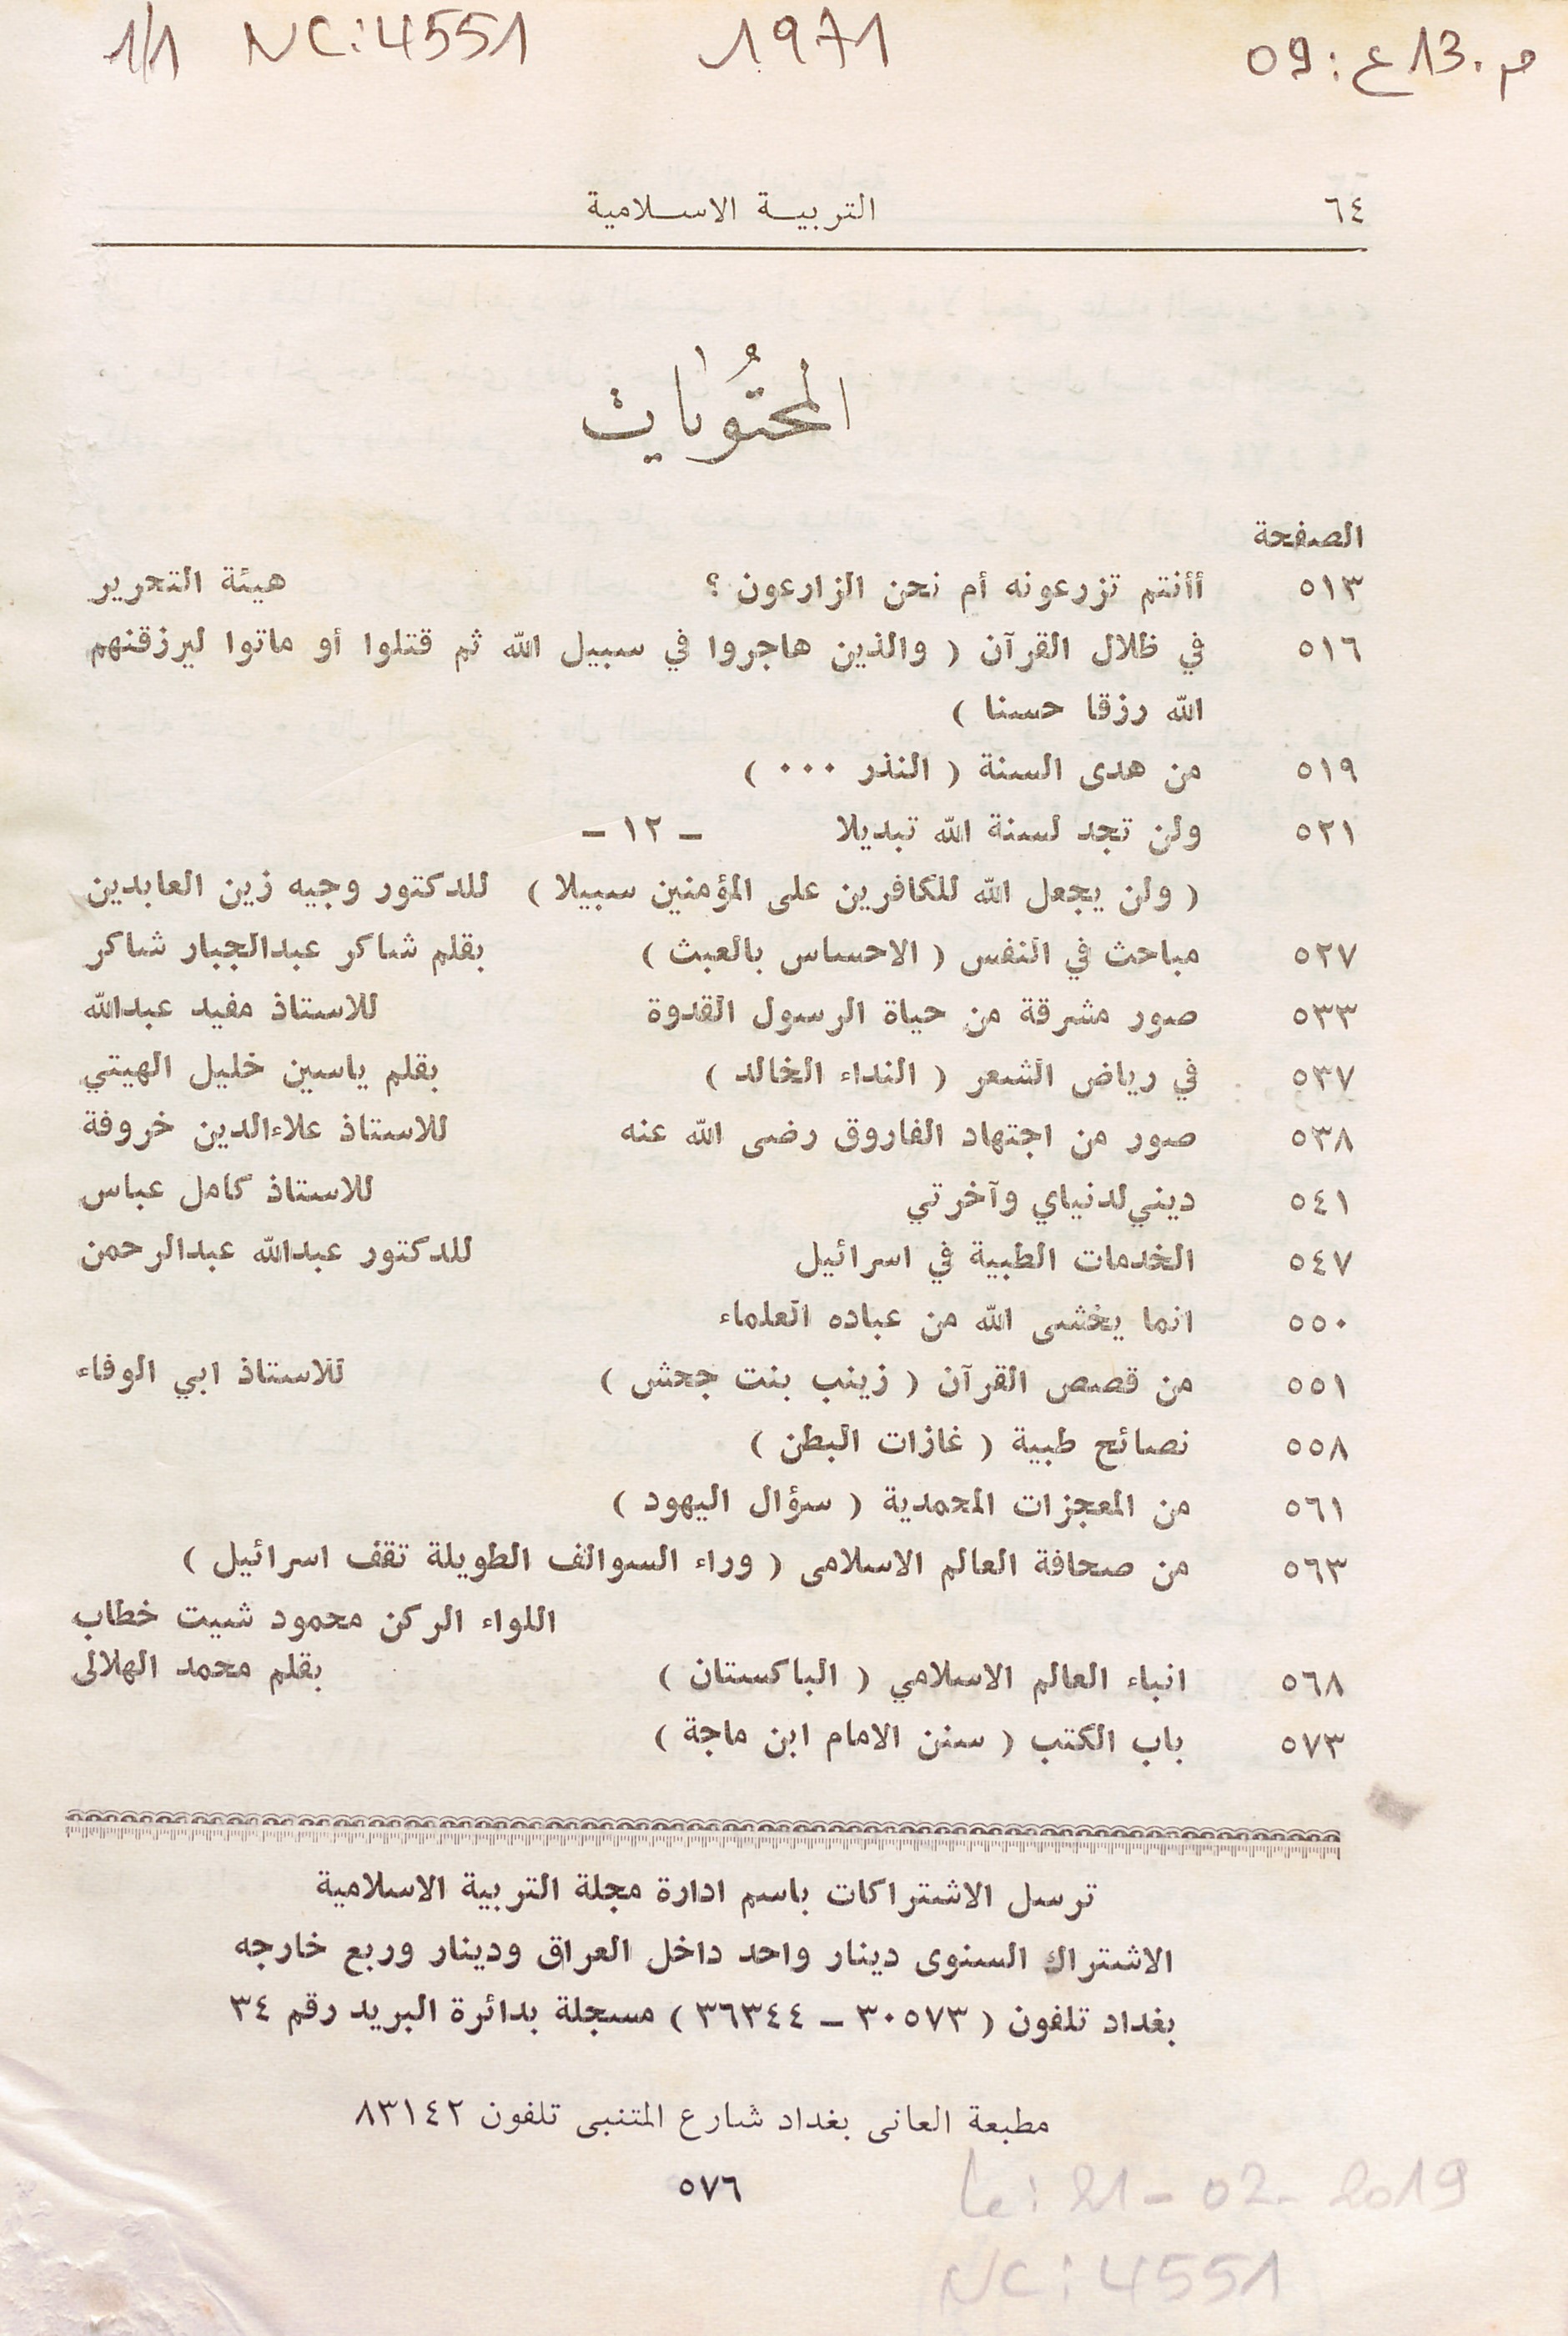 م. 13 ع: 09 1971 NC: 4551 1/1
٦٤ التربيــة الاســلامية
المحتويات
الصفحة
٥١٣ أأنتم تزرعونه أم نحن الزارعون ؟ هيئة التحرير
٥١٦ في ظلال القرآن ( والذين هاجروا في سبيل الله ثم قتلوا أو ماتوا ليرزقنهم
الله رزقا حسنا )
٥١٩ من هدى السنة ( النذر ٠٠٠ )
٥٢١ ولن تجد لسنة الله تبديلا – ١٢ –
( ولن يجعل الله للكافرين على المؤمنين سبيلا ) للدكتور وجيه زين العابدين
٥٢٧ مباحث في النفس ( الاحساس بالعبث ) بقلم شاكر عبدالجبار شاكر
٥٣٣ صور مشرقة من حياة الرسول القدوة للاستاذ مفيد عبدالله
٥٣٧ في رياض الشعر ( النداء الخالد ) بقلم ياسين خليل الهيتي
٥٣٨ صور من اجتهاد الفاروق رضى الله عنه للاستاذ علاءالدين خروفة
٥٤١ ديني لدنياي وآخرتي للاستاذ كامل عباس
٥٤٧ الخدمات الطبية في اسرائيل للدكتور عبدالله عبدالرحمن
٥٥٠ انما يخشى الله من عباده العلماء
٥٥١ من قصص القرآن ( زينب بنت جحش ) للاستاذ ابي الوفاء
٥٥٨ نصائح طبية ( غازات البطن )
٥٦١ من المعجزات المحمدية ( سؤال اليهود )
٥٦٣ من صحافة العالم الاسلامى ( وراء السوالف الطويلة تقف اسرائيل )
اللواء الركن محمود شيت خطاب
٥٦٨ انباء العالم الاسلامي ( الباكستان ) بقلم محمد الهلالى
٥٧٣ باب الكتب ( سنن الامام ابن ماجة )
ترسل الاشتراكات باسم ادارة مجلة التربية الاسلامية
الاشتراك السنوى دينار واحد داخل العراق ودينار وربع خارجه
بغداد تلفون ( ٣٠٥٧٣ – ٣٦٣٤٤ ) مسجلة بدائرة البريد رقم ٣٤
مطبعة العانى بغداد شارع المتنبى تلفون ٨٣١٤٢
٥٧٦
Le: 21-02-2019
NC: 4551